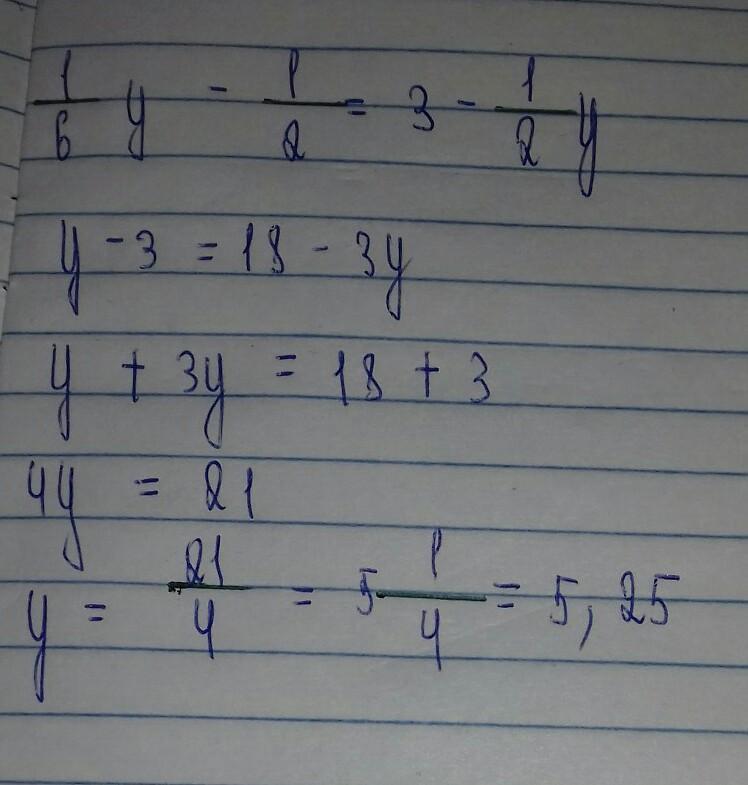 1/6 y - 1/2 = 3 - 1/2 y
y - 3 = 18 - 3y
y + 3y = 18 + 3
4y = 21
y = 21/4 = 5 1/4 = 5,25